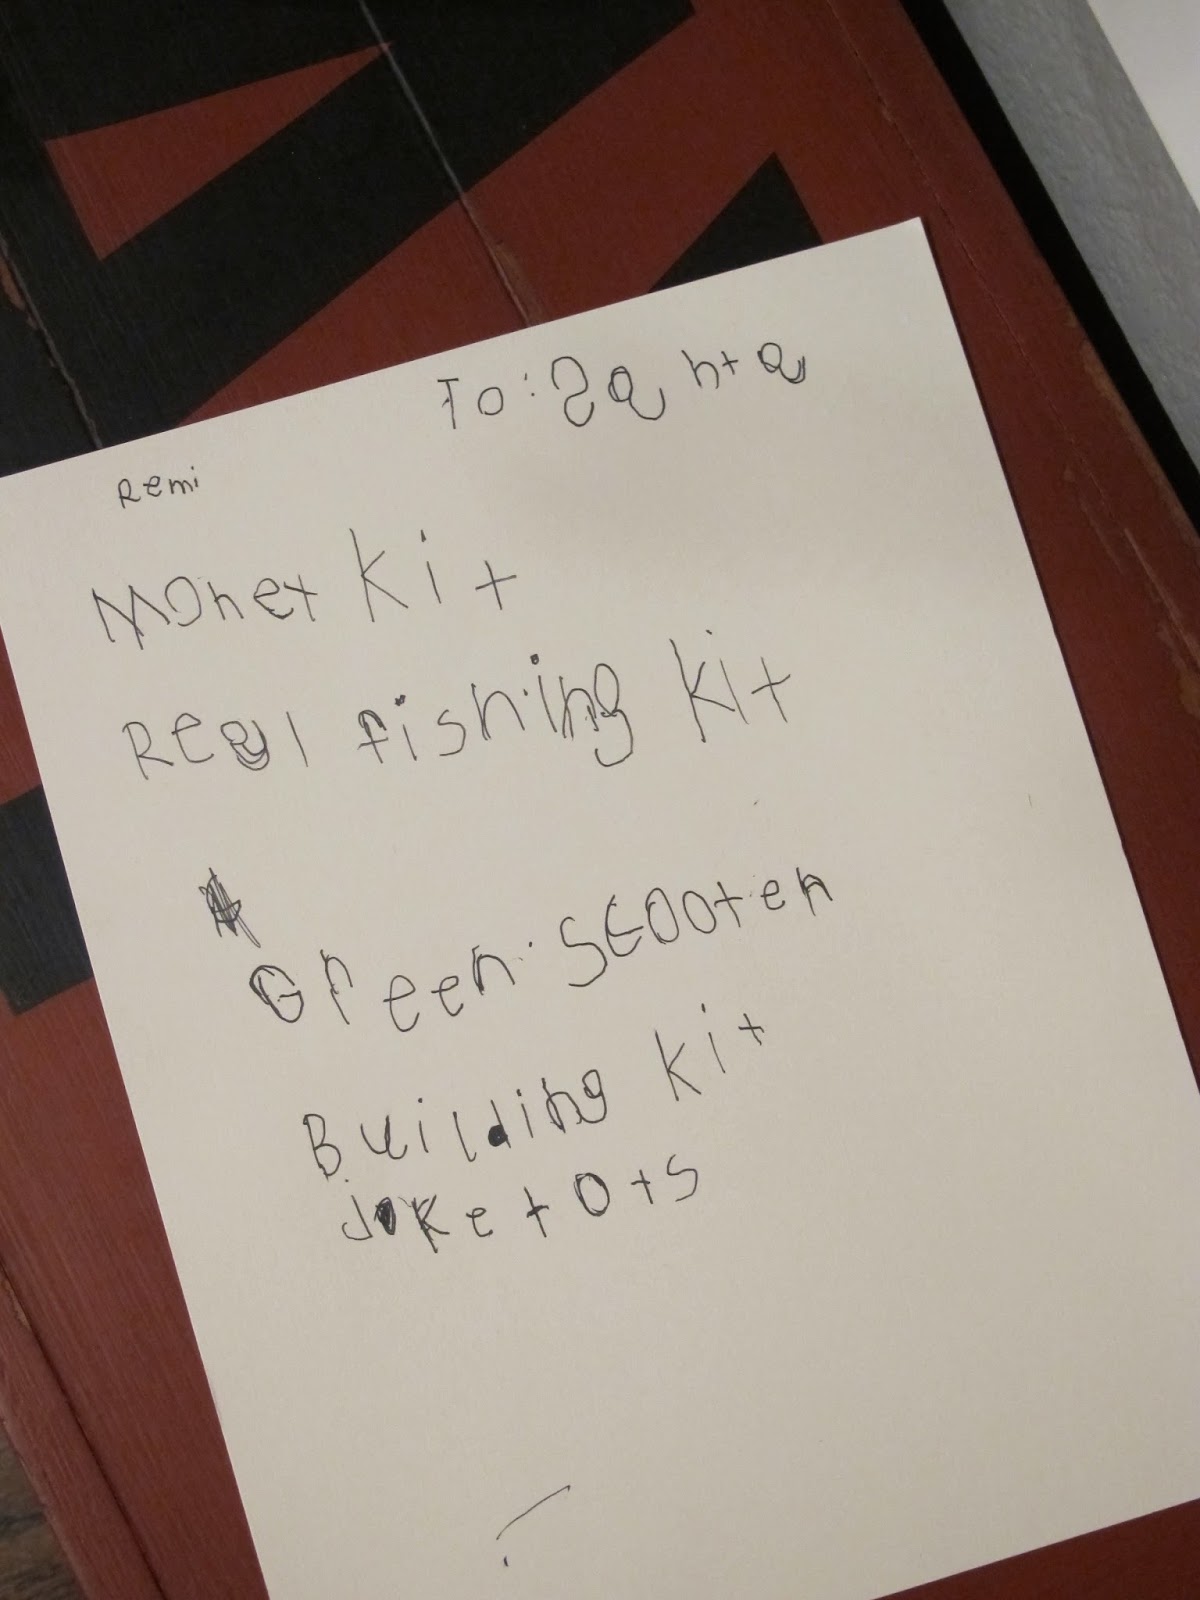 To: Santa
Remi
Monet Kit
Real fishing Kit
Green Scooter
Building Kit
joke tots